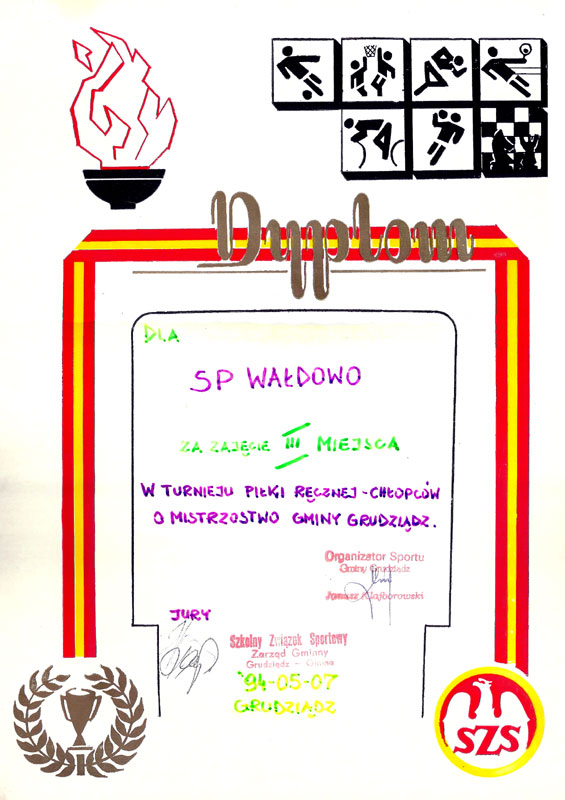 Dyplom
DLA
SP WAŁDOWO
ZA ZAJĘCIE III MIEJSCA
W TURNIEJU PIŁKI RĘCZNEJ - CHŁOPCÓW
O MISTRZOSTWO GMINY GRUDZIĄDZ.
Organizator Sportu
Gminy Grudziądz
Klajborowski
JURY
Szkolny Związek Sportowy
Zarząd Gminny
Grudziądz - Gmina
'94-05-07
GRUDZIĄDZ
SZS